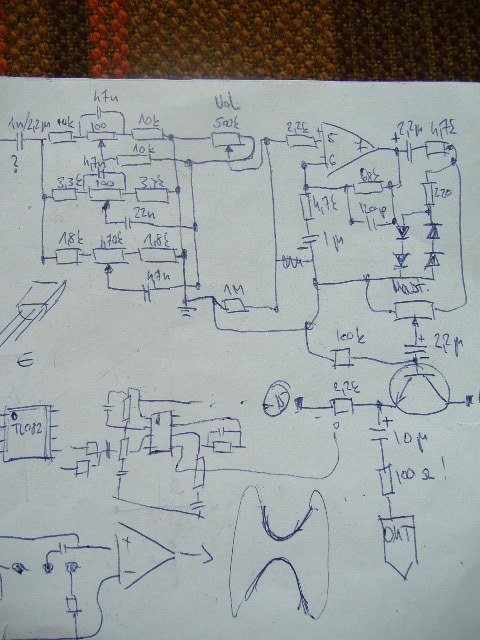 47n
Vol
1n/2,2µ
10k
100
10k
500k
2,2k
5
6
7
2,2µ
4,7k
?
47n
10k
3,3k
100
3,3k
22n
4,7k
68k
120p
220
1,8k
470k
1,8k
1µ
47n
1M
MAST.
+
2,2µ
100k
E
15
2,2k
TL082
+
10µ
100Ω!
OUT
+
-